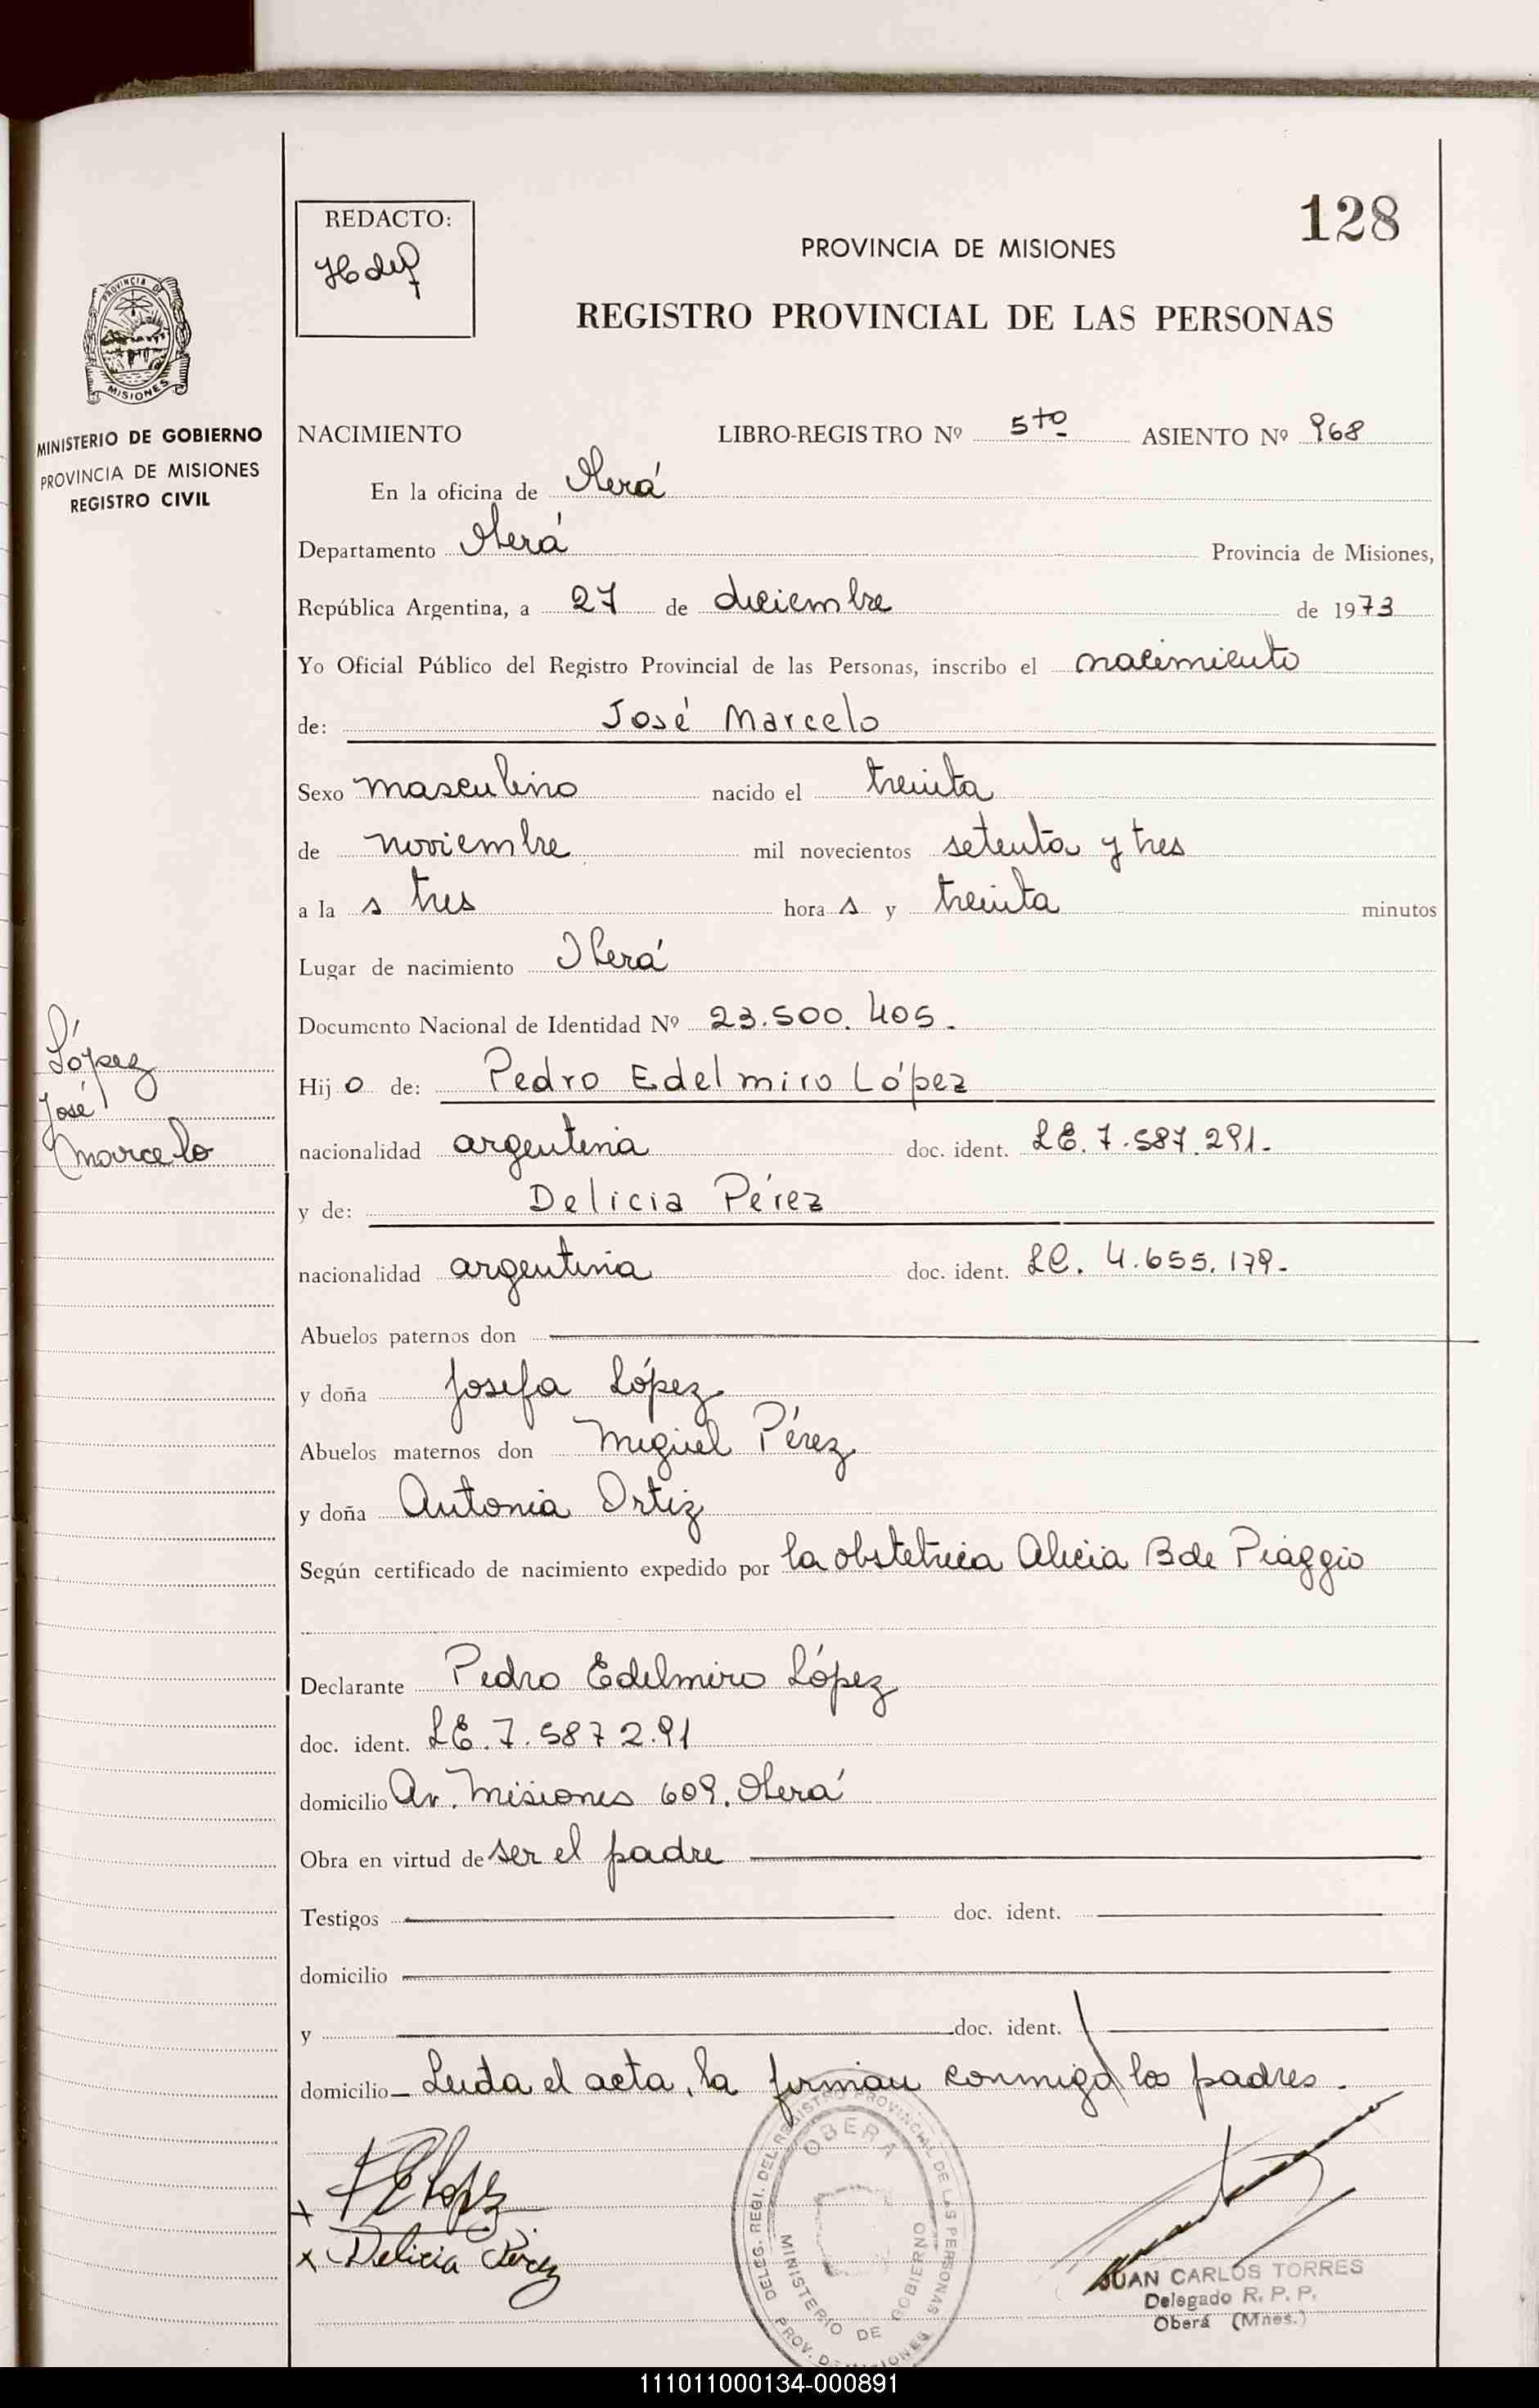 128
REDACTO:
PROVINCIA DE MISIONES
REGISTRO PROVINCIAL DE LAS PERSONAS
PROVINCIA DE
MISIONES
MINISTERIO DE GOBIERNO
PROVINCIA DE MISIONES
REGISTRO CIVIL
NACIMIENTO LIBRO-REGISTRO Nº 5to ASIENTO Nº 968
En la oficina de Oberá
Departamento Oberá Provincia de Misiones,
República Argentina, a 27 de diciembre de 1973
Yo Oficial Público del Registro Provincial de las Personas, inscribo el nacimiento
de: José Marcelo
Sexo masculino nacido el treinta
de noviembre mil novecientos setenta y tres
a la s tres hora s y treinta minutos
Lugar de nacimiento Oberá
Documento Nacional de Identidad Nº 23.500.405.
López
José
Marcelo
Hij o de: Pedro Edelmiro López
nacionalidad argentina doc. ident. LE. 7.587.291.
y de: Delicia Pérez
nacionalidad argentina doc. ident. LC. 4.655.179.
Abuelos paternos don
y doña Josefa López
Abuelos maternos don Miguel Pérez
y doña Antonia Ortiz
Según certificado de nacimiento expedido por la obstetricia Alicia B de Piaggio
Declarante Pedro Edelmiro López
doc. ident. LE. 7.587 2.91
domicilio Av. Misiones 609. Oberá
Obra en virtud de ser el padre
Testigos doc. ident.
domicilio
y doc. ident.
domicilio Leida el acta, la firman conmigo los padres.
x P E López
x Delicia Pérez
DELEG. REGI. DEL REGISTRO PROVINCIAL DE LAS PERSONAS
OBERA
MINISTERIO DE GOBIERNO
PROV. DE MISIONES
JUAN CARLOS TORRES
Delegado R. P. P.
Oberá (Mnes.)
111011000134-000891